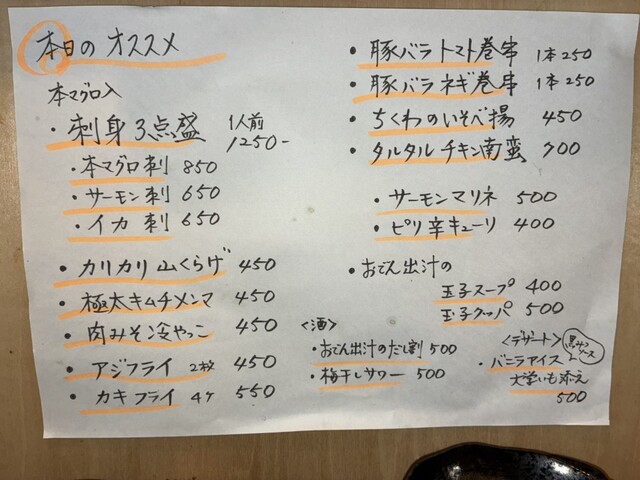 本日のオススメ
本マグロ入
・刺身3点盛 1人前 1250-
・本マグロ刺 850
・サーモン刺 650
・イカ刺 650
・カリカリ山くらげ 450
・極太キムチメンマ 450
・肉みそ冷やっこ 450
・アジフライ 2枚 450
・カキフライ 4ケ 550
・豚バラトマト巻串 1本250
・豚バラネギ巻串 1本250
・ちくわのいそべ揚 450
・タルタルチキン南蛮 700
・サーモンマリネ 500
・ピリ辛キューリ 400
・おでん出汁の
玉子スープ 400
玉子クッパ 500
<酒>
・おでん出汁のだし割 500
・梅干しサワー 500
<デザート>
・バニラアイス
大学いも添え
500